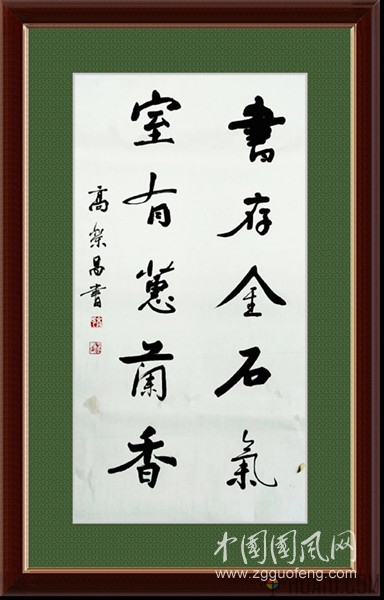 書存金石氣
室有蕙蘭香
高榮昌書
中國國風网
www.zgguofeng.com